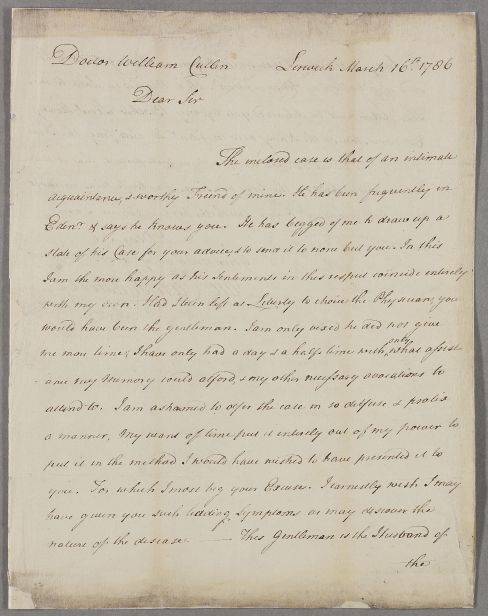 Doctor William Cullen Lerwick March 16th. 1786
Dear Sir
The inclosed case is that of an intimate
acquaintance, & worthy Friend of mine. He has been frequently in
Edenr. & says he knows you. He has begged of me to draw up a
state of his Case for your advice, & to send it to none but you. In this
I am the more happy as his sentements in this respect coincide entirely
with my own. Had I been left at Liberty to choice the Physician, you
would have been the gentleman. I am only vexed he did not give
me more time, I have only had a day & a half's time with only what assist
ance my Memory could afford, & my other necessary avocations to
attend to. I am ashamed to offer the case in so diffuse & prolix
a manner, My want of time put it entirely out of my power to
put it in the method I would have wished to have presented it to
you. For which I most beg your Excuse. I earnestly wish I may
have given you such leading Symptoms as may discover the
nature of the disease. — This Gentleman is the Husband of
the